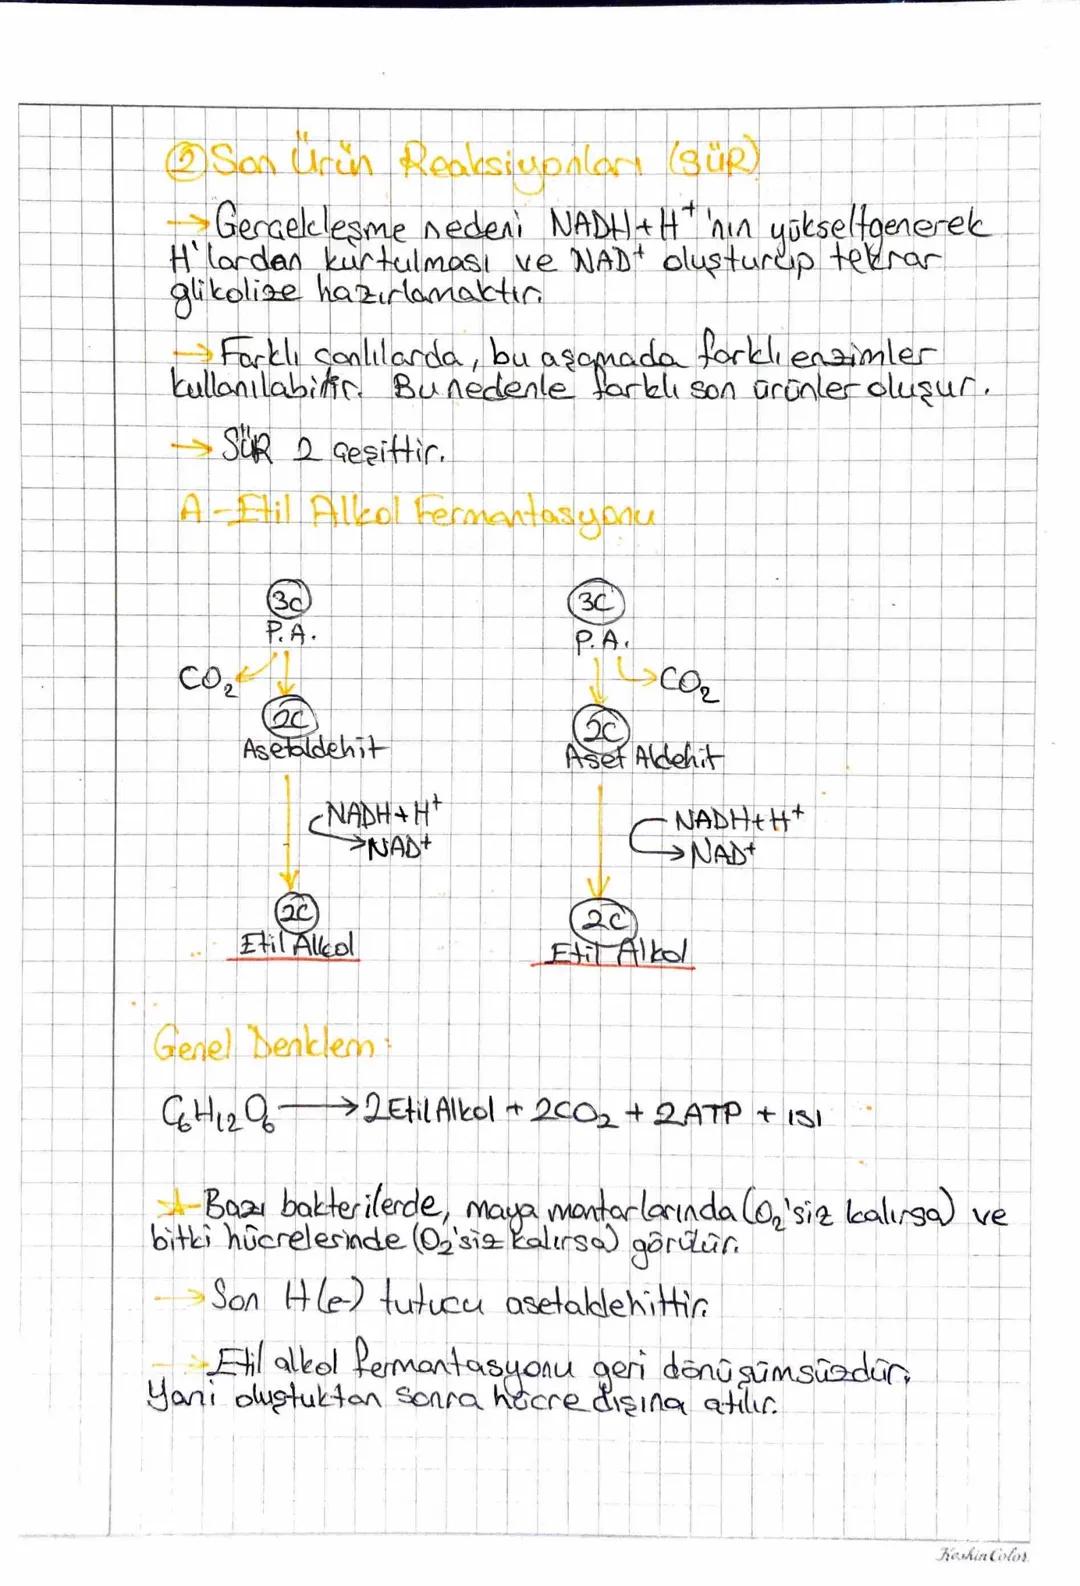 ② Son Ürün Reaksiyonları (SÜR)
→ Gerçekleşme nedeni NADH+H⁺'nın yükseltgenerek
H'lardan kurtulması ve NAD⁺ oluşturup tekrar
glikolize hazırlamaktır.
→ Farklı canlılarda, bu aşamada farklı enzimler
kullanılabilir. Bu nedenle farklı son ürünler oluşur.
→ SÜR 2 çeşittir.
A - Etil Alkol Fermantasyonu
3C 3C
P.A. P.A.
CO₂ CO₂
2C 2C
Asetaldehit Aset Aldehit
NADH+H⁺ NADH+H⁺
NAD⁺ NAD⁺
2C 2C
Etil Alkol Etil Alkol
Genel Denklem:
C₆H₁₂O₆ → 2 Etil Alkol + 2CO₂ + 2ATP + ısı
Bazı bakterilerde, maya mantarlarında (O₂'siz kalırsa) ve
bitki hücrelerinde (O₂'siz kalırsa) görülür.
→ Son H(e-) tutucu asetaldehittir.
→ Etil alkol fermantasyonu geri dönüşümsüzdür,
Yani oluştuktan sonra hücre dışına atılır.
KeskinColor